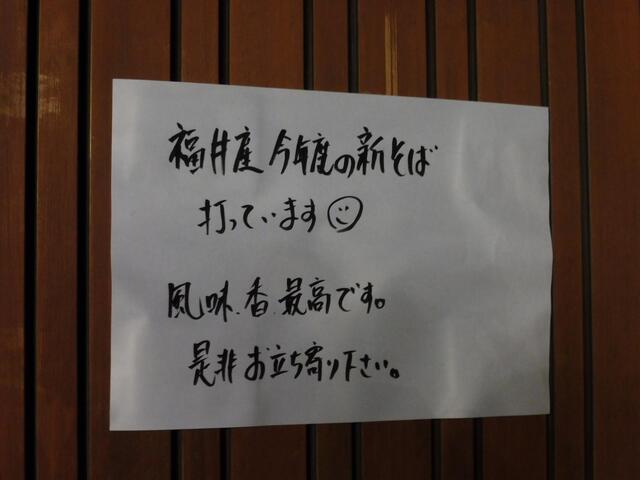 福井産 今年度の新そば
打っています☺
風味、香、最高です。
是非お立ち寄り下さい。